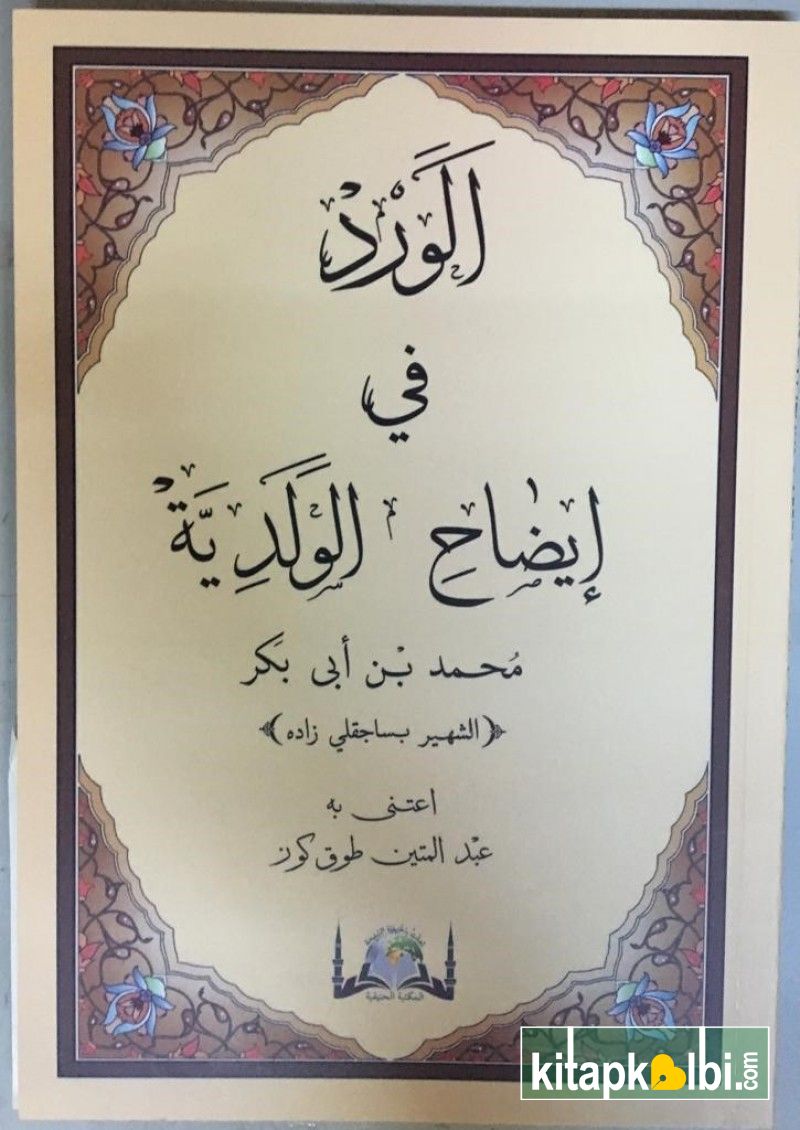 الَوَرْد
في
إيضاحِ الوَلَدِيَّة
مُحمد بْن أبى بَكر
﴿الشهير بساجقلي زاده﴾
اعتنى به
عبْد المتين طوق كوز
kitapkalbi.com